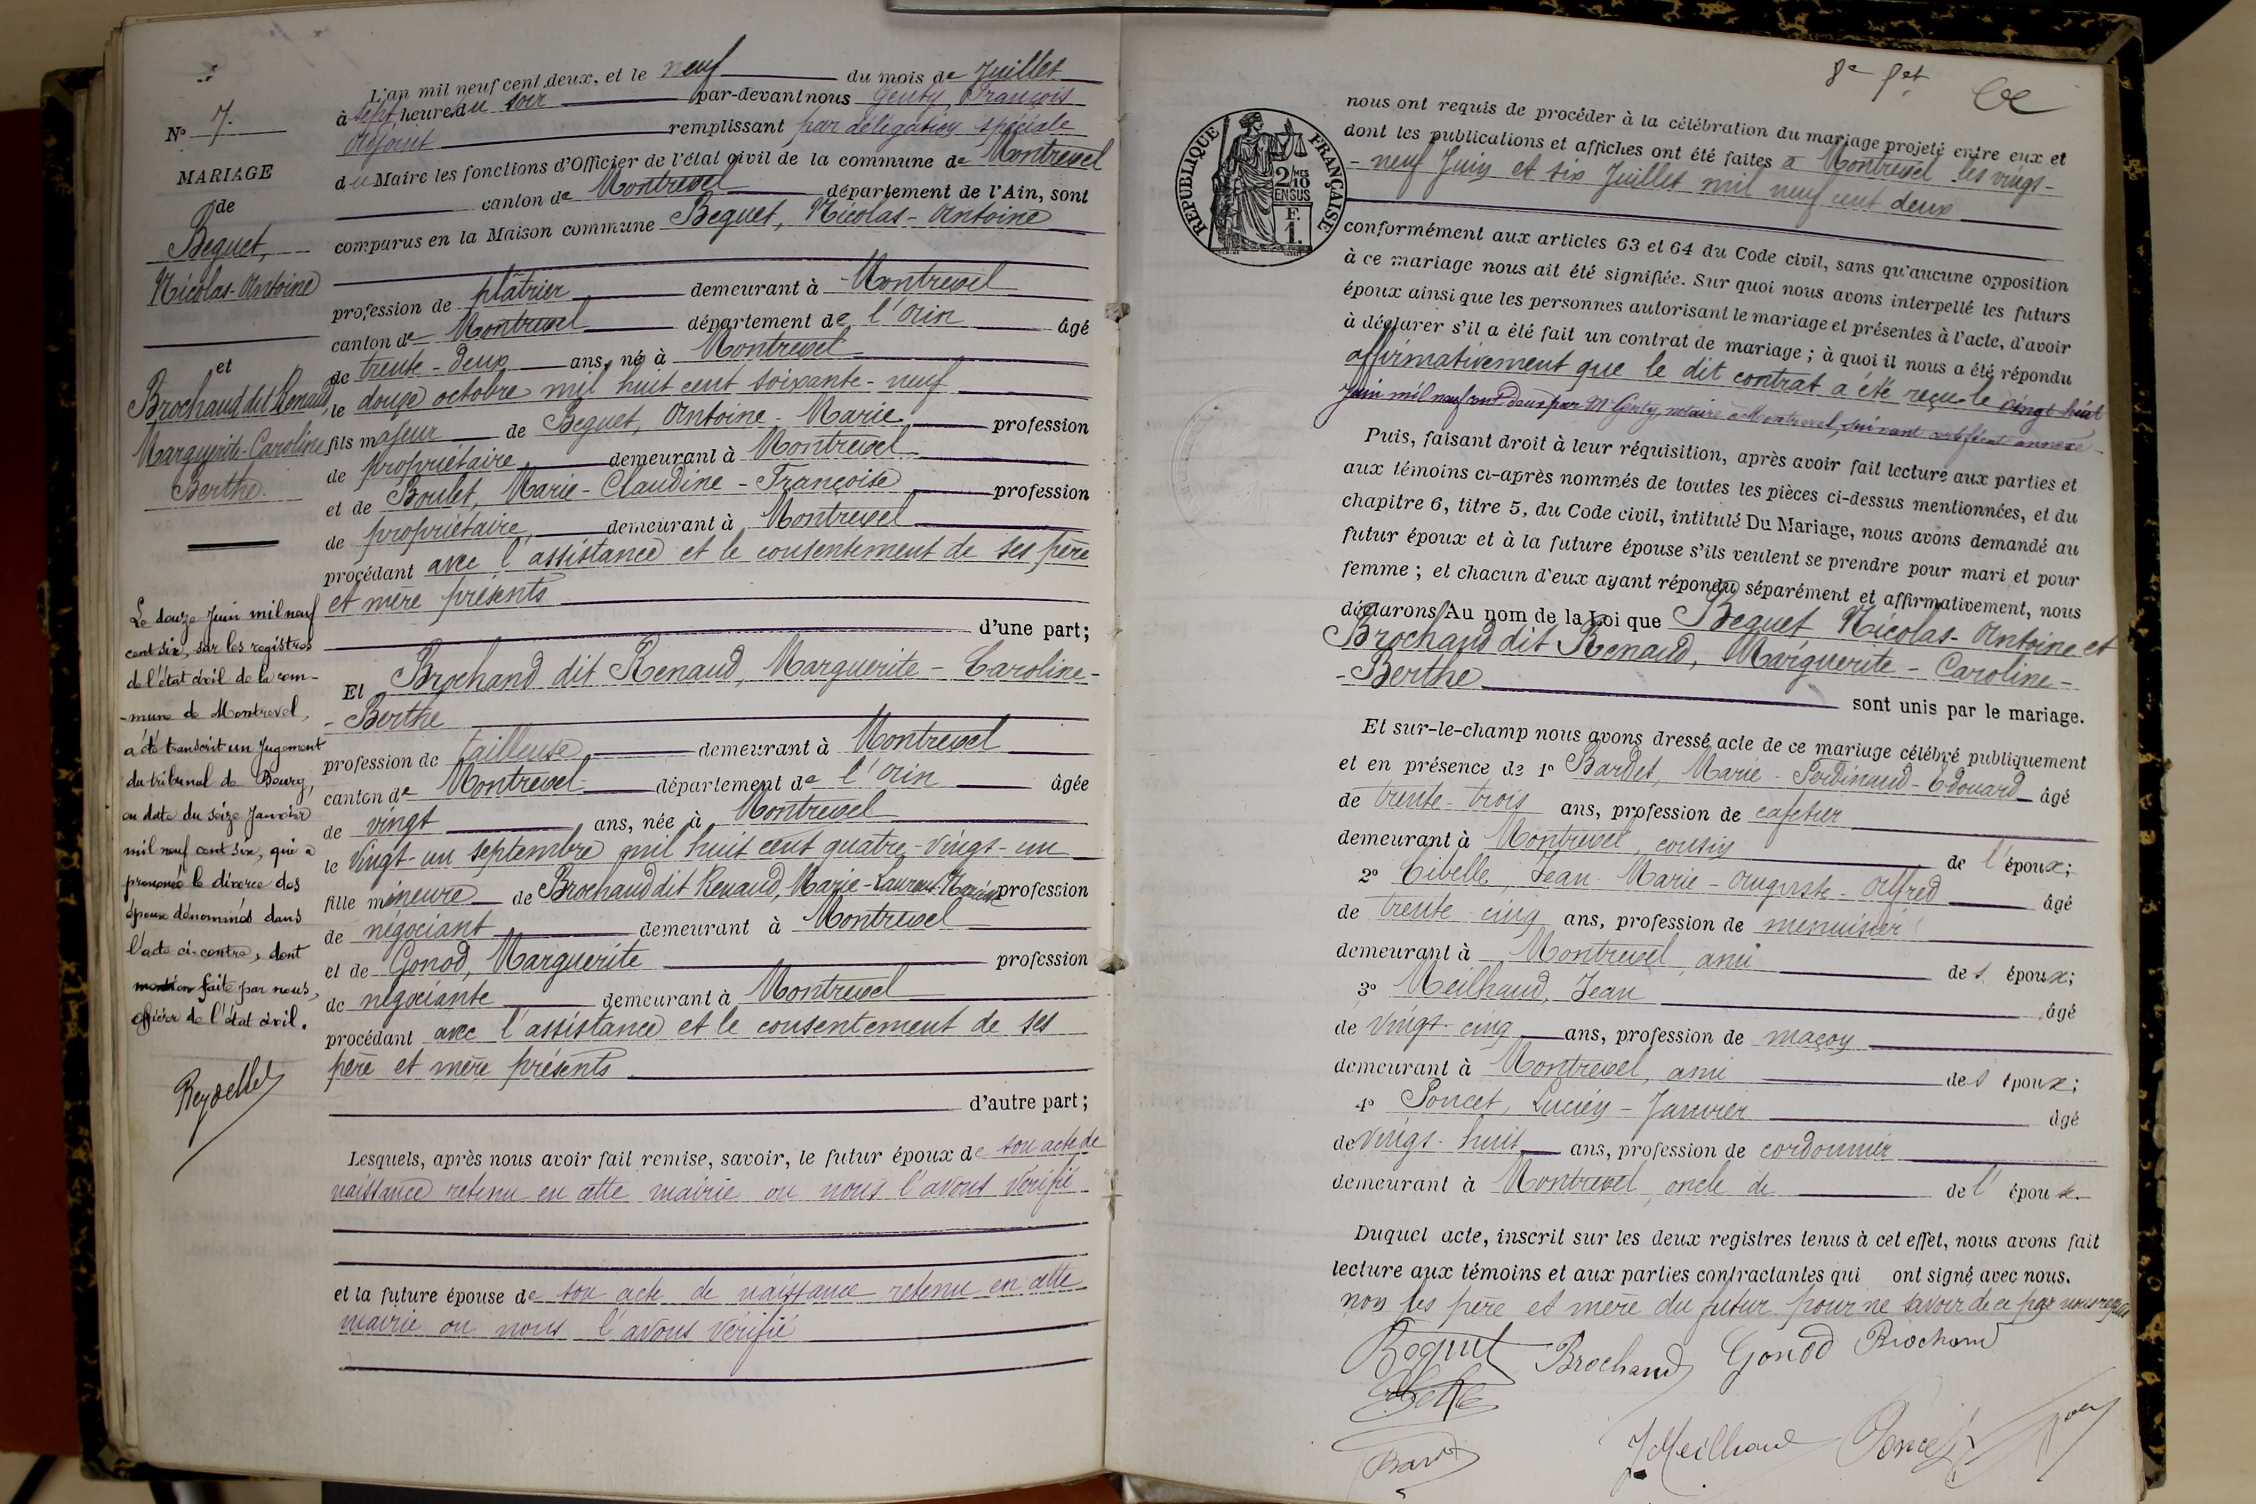 N° 7.
MARIAGE
de
Beguet,
Nicolas-Antoine
et
Brochand dit Renaud,
Marguerite-Caroline
Berthe.
Le douze Juin mil neuf
cent six, sur les registres
de l'état civil de la com-
-mune de Montrevel,
a été transcrit un Jugement
du tribunal de Bourg,
en date du seize Janvier
mil neuf cent six, qui a
prononcé le divorce des
époux dénommés dans
l'acte ci-contre, dont
mention faite par nous,
officier de l'état civil.
Reydellet
L'an mil neuf cent deux, et le neuf du mois de Juillet
à sept heures du soir par-devant nous Genty, François
Adjoint remplissant par délégation spéciale
du Maire les fonctions d'Officier de l'état civil de la commune de Montrevel
canton de Montrevel département de l'Ain, sont
comparus en la Maison commune Beguet, Nicolas-Antoine
profession de plâtrier demeurant à Montrevel
canton de Montrevel département de l'Ain âgé
de trente-deux ans, né à Montrevel
le douze octobre mil huit cent soixante-neuf
fils majeur de Beguet, Antoine-Marie profession
de propriétaire demeurant à Montrevel
et de Boulet, Marie-Claudine-Françoise profession
de propriétaire, demeurant à Montrevel
procédant avec l'assistance et le consentement de ses père
et mère présents
d'une part;
Et Brochand dit Renaud, Marguerite-Caroline-
-Berthe
profession de tailleuse demeurant à Montrevel
canton de Montrevel département de l'Ain âgée
de vingt ans, née à Montrevel
le vingt-un septembre mil huit cent quatre-vingt-un
fille mineure de Brochand dit Renaud, Marie-Laurent profession
de négociant demeurant à Montrevel
et de Gonod, Marguerite profession
de négociante demeurant à Montrevel
procédant avec l'assistance et le consentement de ses
père et mère présents
d'autre part;
Lesquels, après nous avoir fait remise, savoir, le futur époux de son acte de
naissance retenu en cette mairie ou nous l'avons vérifié
et la future épouse de son acte de naissance retenu en cette
mairie ou nous l'avons vérifié
8e fet
REPUBLIQUE FRANÇAISE
2/10 MES
EN SUS
F.
1.
nous ont requis de procéder à la célébration du mariage projeté entre eux et
dont les publications et affiches ont été faites à Montrevel les vingt-
-neuf Juin et six Juillet mil neuf cent deux
conformément aux articles 63 et 64 du Code civil, sans qu'aucune opposition
à ce mariage nous ait été signifiée. Sur quoi nous avons interpellé les futurs
époux ainsi que les personnes autorisant le mariage et présentes à l'acte, d'avoir
à déclarer s'il a été fait un contrat de mariage; à quoi il nous a été répondu
affirmativement que le dit contrat a été reçu le vingt huit
Juin mil neuf cent deux par Me Genty, notaire à Montrevel, suivant certificat annexé
Puis, faisant droit à leur réquisition, après avoir fait lecture aux parties et
aux témoins ci-après nommés de toutes les pièces ci-dessus mentionnées, et du
chapitre 6, titre 5, du Code civil, intitulé Du Mariage, nous avons demandé au
futur époux et à la future épouse s'ils veulent se prendre pour mari et pour
femme; et chacun d'eux ayant répondu séparément et affirmativement, nous
déclarons Au nom de la Loi que Beguet, Nicolas-Antoine et
Brochand dit Renaud, Marguerite-Caroline-
-Berthe
sont unis par le mariage.
Et sur-le-champ nous avons dressé acte de ce mariage célébré publiquement
et en présence de 1° Bardet, Marie-Ferdinand-Edouard âgé
de trente-trois ans, profession de cafetier
demeurant à Montrevel, cousin de l'époux;
2° Cibelle, Jean-Marie-Auguste-Alfred âgé
de trente-cinq ans, profession de menuisier
demeurant à Montrevel, ami des époux;
3° Meilhaud, Jean âgé
de vingt-cinq ans, profession de maçon
demeurant à Montrevel, ami des époux;
4° Poncet, Lucien-Janvier âgé
de vingt-huit ans, profession de cordonnier
demeurant à Montrevel, oncle de de l'époux.
Duquel acte, inscrit sur les deux registres tenus à cet effet, nous avons fait
lecture aux témoins et aux parties contractantes qui ont signé avec nous.
non les père et mère du futur pour ne savoir de ce par nous requis
Beguet Brochand Gonod Brochand
J Meilhaud Poncet